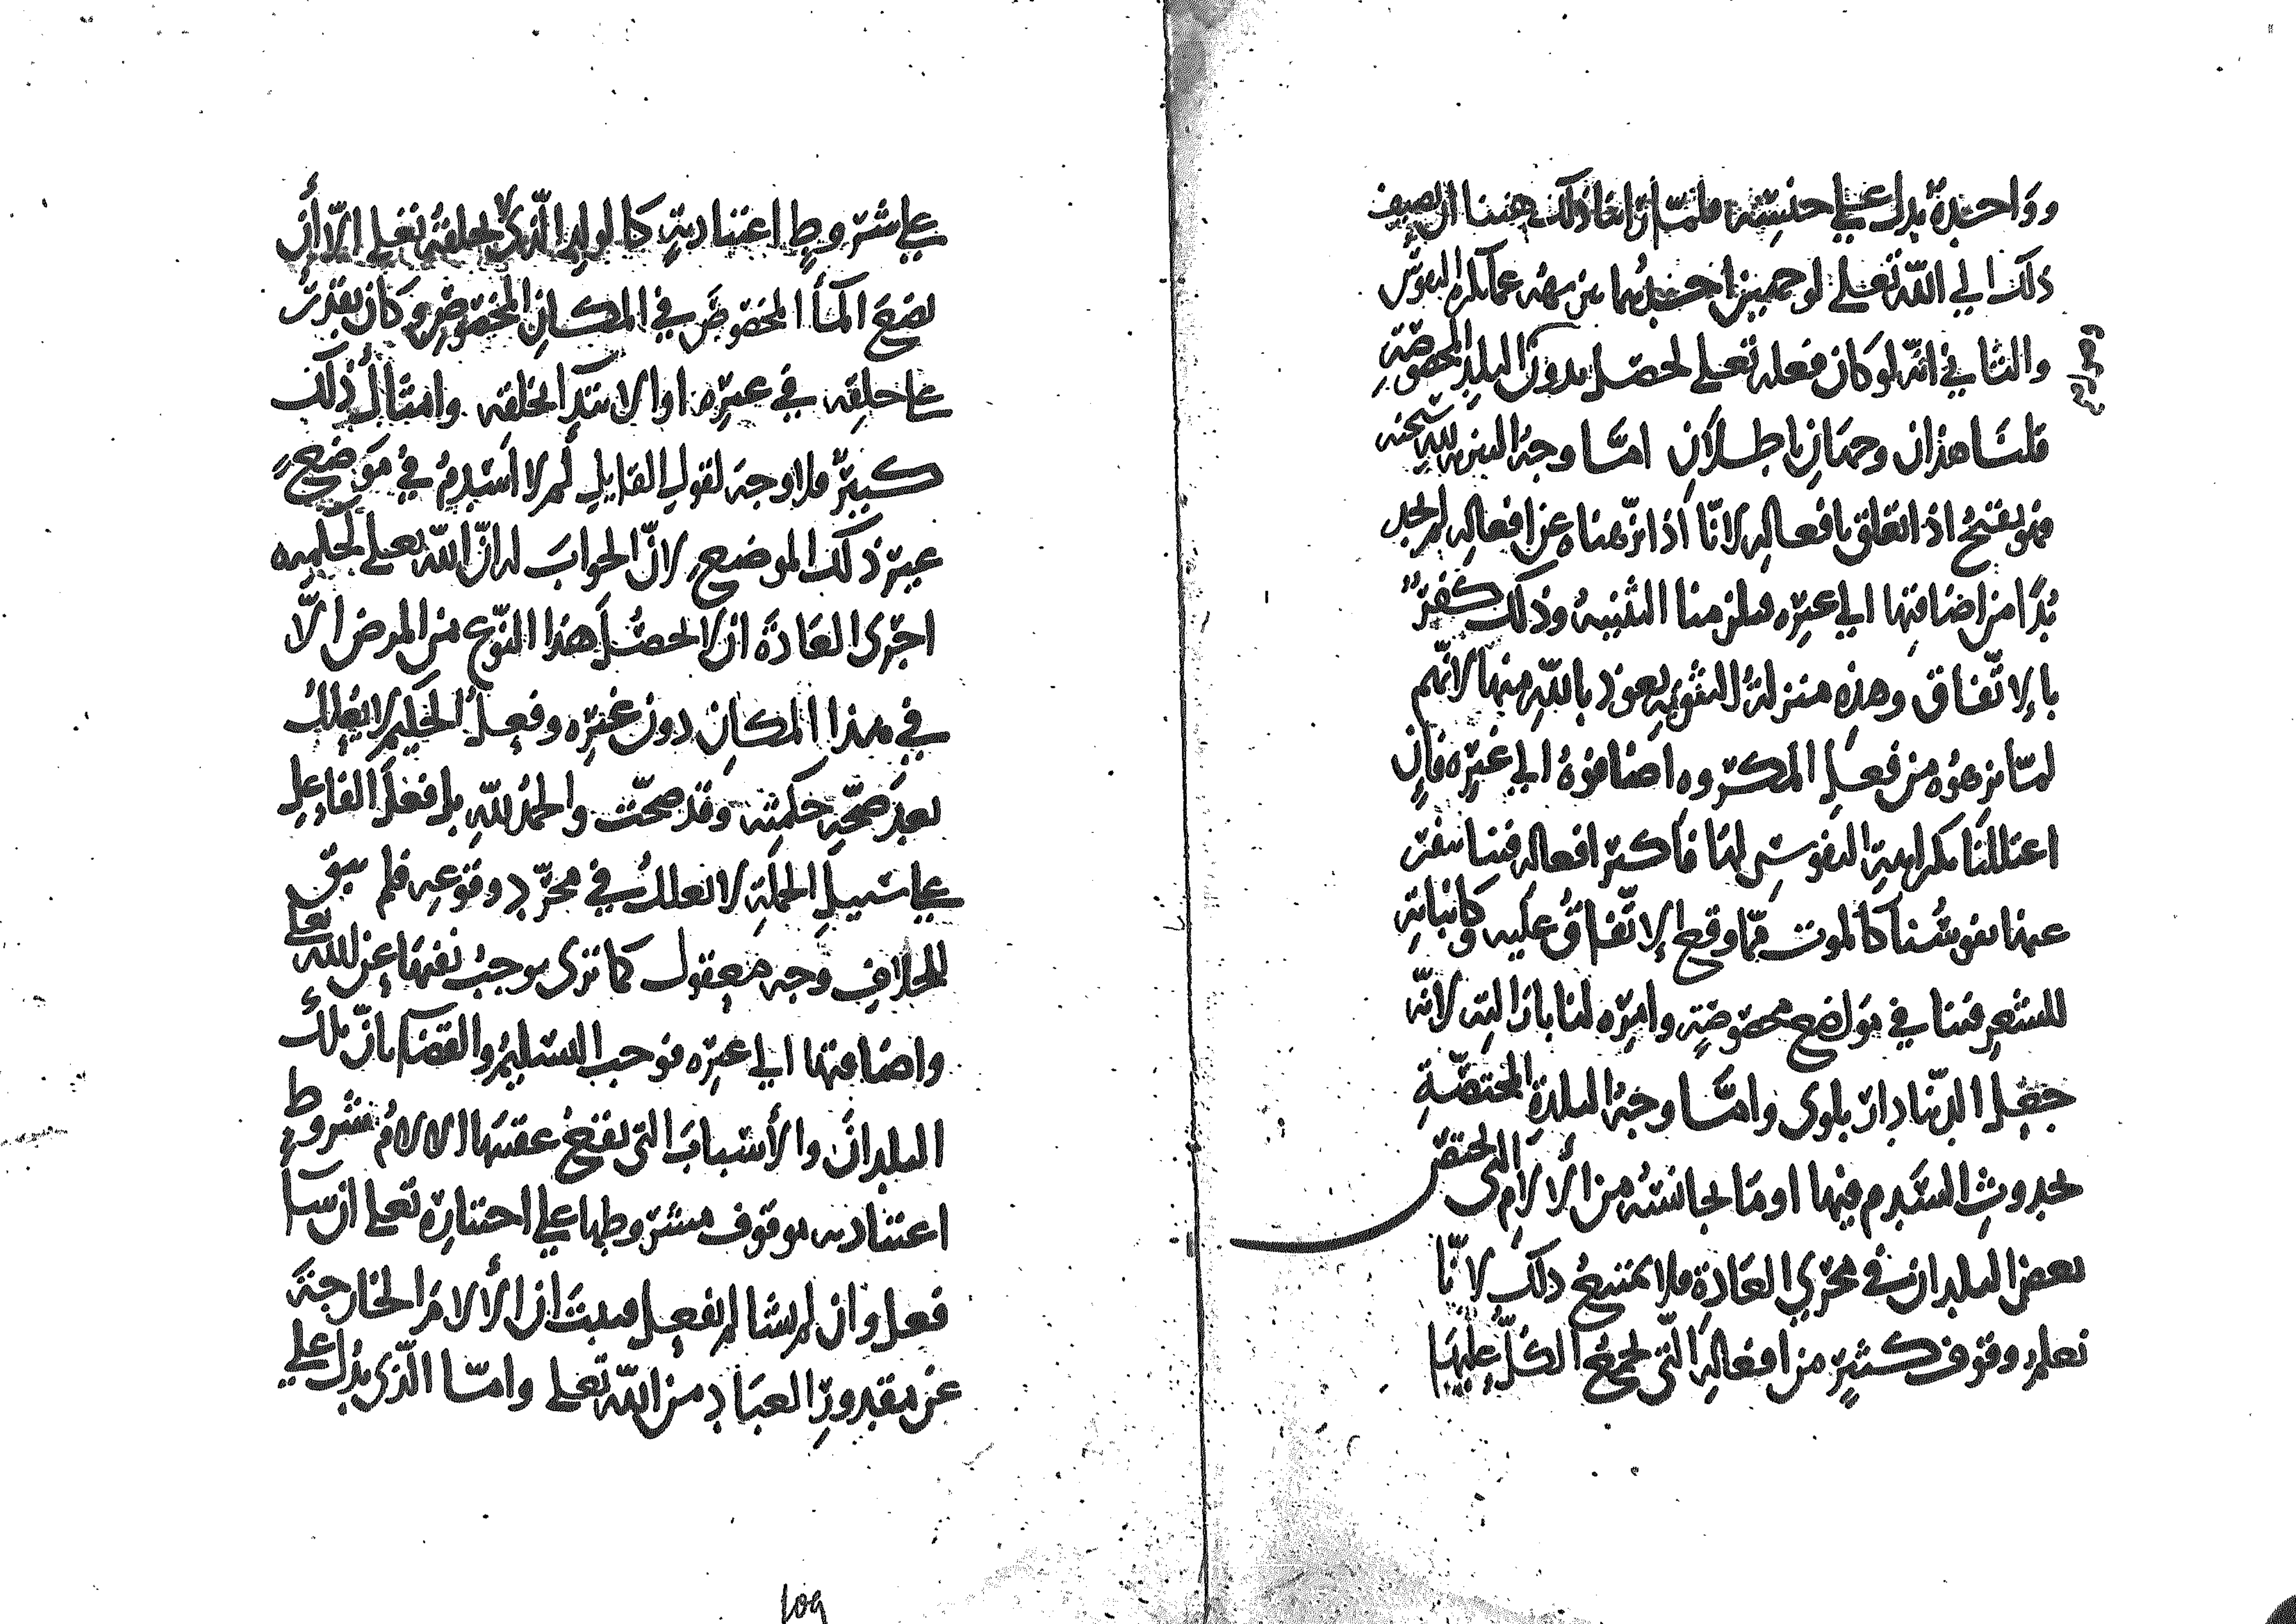 وواحدة يدل على جنسه فلمّا ان اتفاذلك هننا ان نضيف
ذلك الى الله تعلى لوجهين احدهما ننزهه عما تكره النفوس
والثاني انّه لو كان فعله تعلى لحصل بدون البلد المخصوصة
قلنا هذان وجهان باطلان امّا وجه التنزيه لله سبحنه
فهو يقبح اذا تعلق بافعاله لانّا اذا نزّهناه عن افعاله لم نجد
بُدًّا من اضافتها الى غيره فيلزمنا التثنيه وذلك كفرٌ
بالإتّفاق وهذه منزلة الثنويّه نعوذ بالله منها لانّهم
لمّا نزهوه من فعل المكروه اضافوه الى غيره فإن
اعتللنا بكراهية النفوس لها فأكثر افعاله فينا تنفر
عنها نفوسُنا كالموت ممّا وقع الإتّفاقُ عليه وكإنباته
للشعر فينا في مواضع مخصوصةٍ وامره لنا بازالته لانّه
جعل الدّنيا دار بلوى وامّا وجهُ البلدة المختصّة
بحدوث السَّدم فيها او مَا يجانسُه من الألام التي تختص
بعض البلدان في مجرى العَادة فلا يمتنع ذلك لانّا
نعلم وقوف كثيرٍ من افعاله الّتي يجمع الكلّ عليها
على شروطٍ اعتياديةٍ كالولد الّذي لا يخلقه تعلى الاّ أن
يضع المأ المخصوص في المكان المخصوص وكان يقدر
على خلقه في غيره او الابتدا بخلقه وامثال ذلك
كثيرٌ فلا وجه لقول القايل لم لا اَسْدِمُ في مَوضعٍ
غير ذلك الموضع لانّ الجواب له انّ الله تعلى لحكمته
اجرى العَادة ان لا يحصُل هذا النّوع من المرض الاّ
في هذا المكان دون غيره وفعلُ الحكيم لا يُعلّلُ
بعد صحّة حكمته وقد صحّت والحمد لله بل فعل الفاعل
على سبيل الجملة لا يعلّلُ في مجرّد وقوعه فلم يبق
للخلاف وجه معقول كما ترى يوجبُ نفيها عن الله تعلى
واضافتها الى غيره فوجب التسليم والقضا بأنّ تلك
البلدان والأسباب التي تقع عقيبها الالامُ بشروطٍ
اعتياديه موقوف مشروطها على اختياره تعلى ان شأ
فعل وان لم يشا لم يفعل فثبت ان الألام الخارجة
عن مقدور العباد من الله تعلى وامّا الّذي يدل على
109